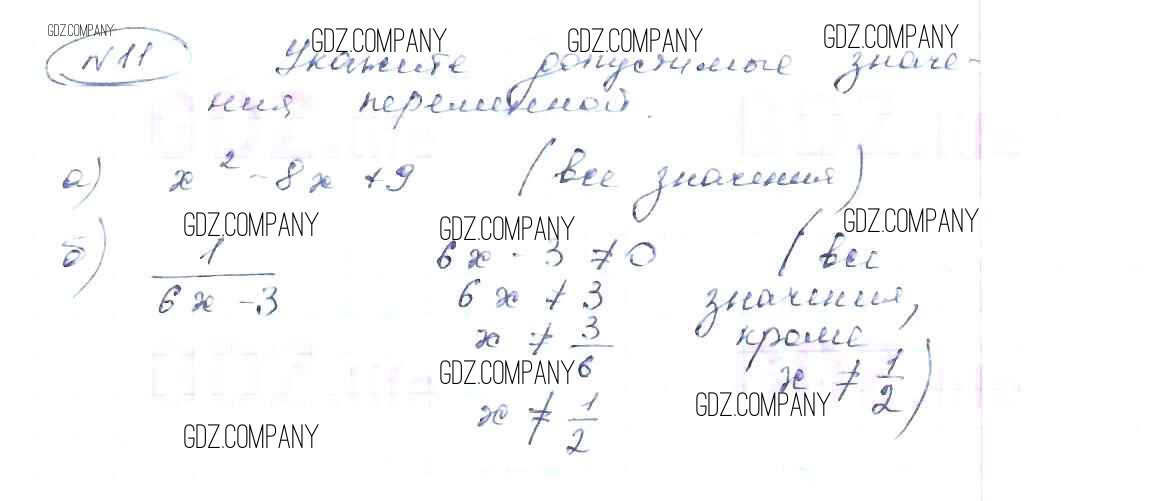 GDZ.COMPANY
№11 Укажите допустимые значе-
GDZ.COMPANY GDZ.COMPANY GDZ.COMPANY
ния переменной.
а) x² - 8x + 9 (все значения)
GDZ.COMPANY GDZ.COMPANY GDZ.COMPANY
б) 1/(6x - 3) 6x - 3 ≠ 0 (все
6x ≠ 3 значения,
x ≠ 3/6 кроме
GDZ.COMPANY x ≠ 1/2)
GDZ.COMPANY
x ≠ 1/2
GDZ.COMPANY